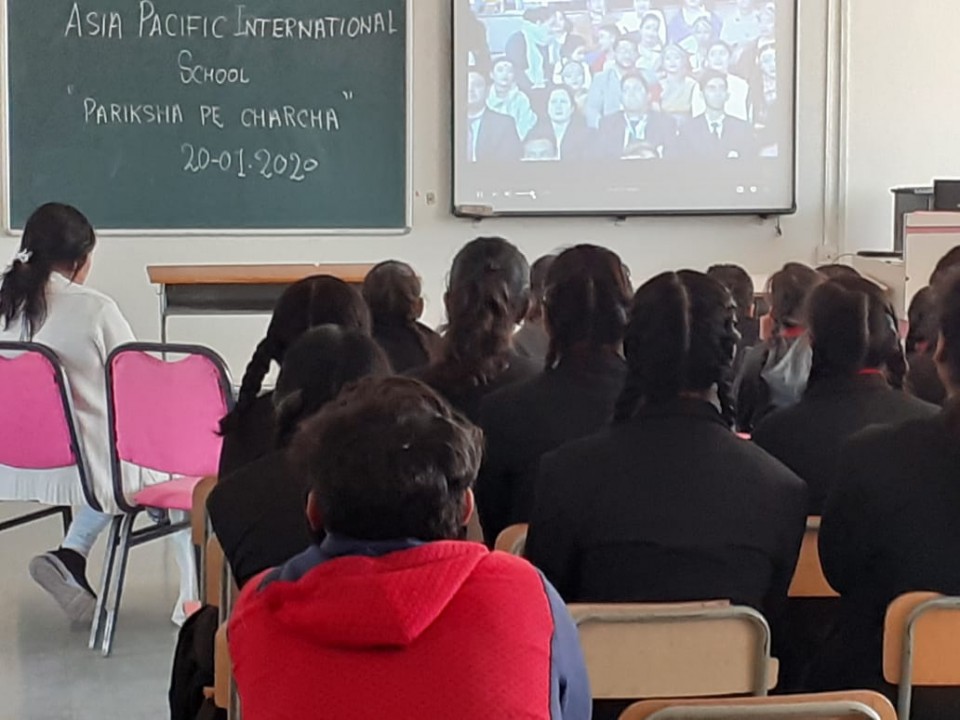 ASIA PACIFIC INTERNATIONAL
SCHOOL
"PARIKSHA PE CHARCHA"
20-01-2020